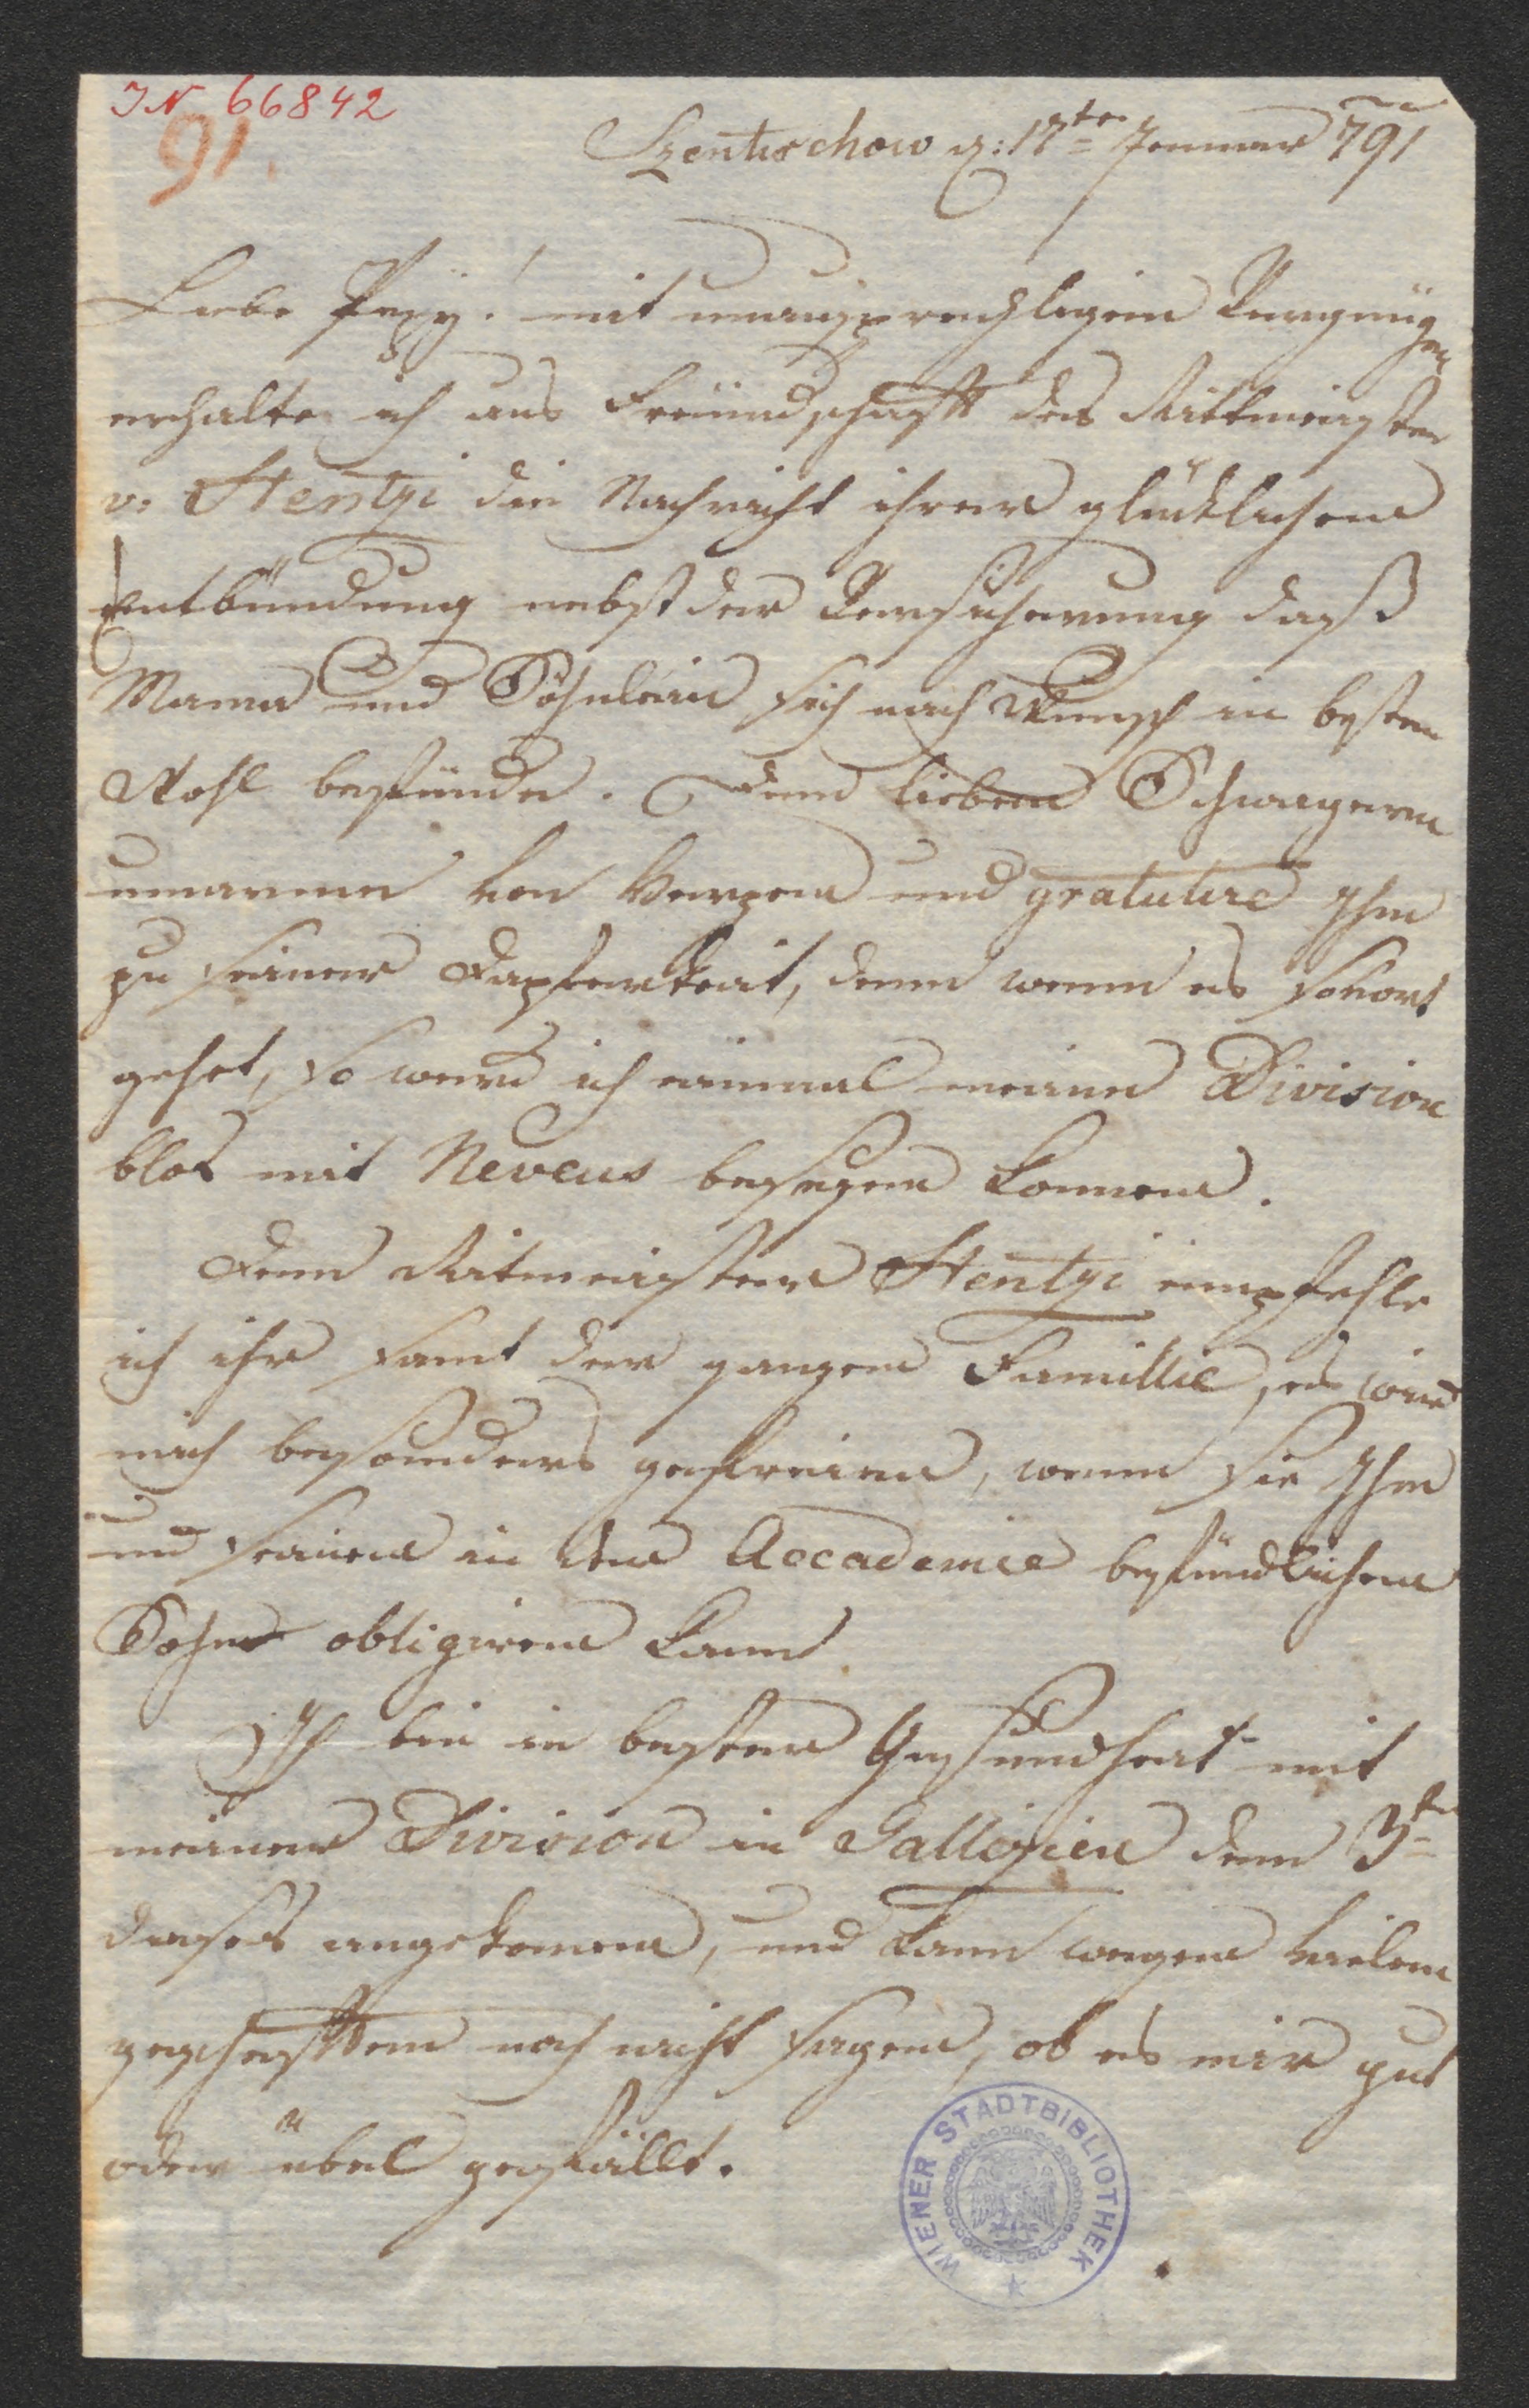 IN 66842
91.
Szentuschow d: 17te Jenner 791
Liebe Pepy! mit unaussprechlichem Vergnügen
erhalte ich aus Freündschafft des Rittmeister
v. Hentzi die Nachricht ihrer glücklichen
Entbindung nebst der Versicherung daß
Mama und Söhnlein sich nach Wunsch in besten
Wohl befünde. Denn lieben Schwagern
umarme von Herzen und gratulire Ihm
zu seiner Dapferkeit, denn wenn es so fort
gehet, so werd ich einmal meine Division
blos mit Neveus besezen können.
Dem Ritmeister Hentzi empfehle
ich ihr samt der ganzen Famillie, es wird
mich besonders gefreien, wenn sie Ihm
und seinen in der Accademie befündlichen
Sohne obligiren kann
Ich bin in bester Gesundheit mit
meiner Division in Gallizien denn 3te
dieses angekomen, und kann wegen vielen
geschefften noch nicht sagen, ob es mir gut
oder übel gefällt.
WIENER STADTBIBLIOTHEK